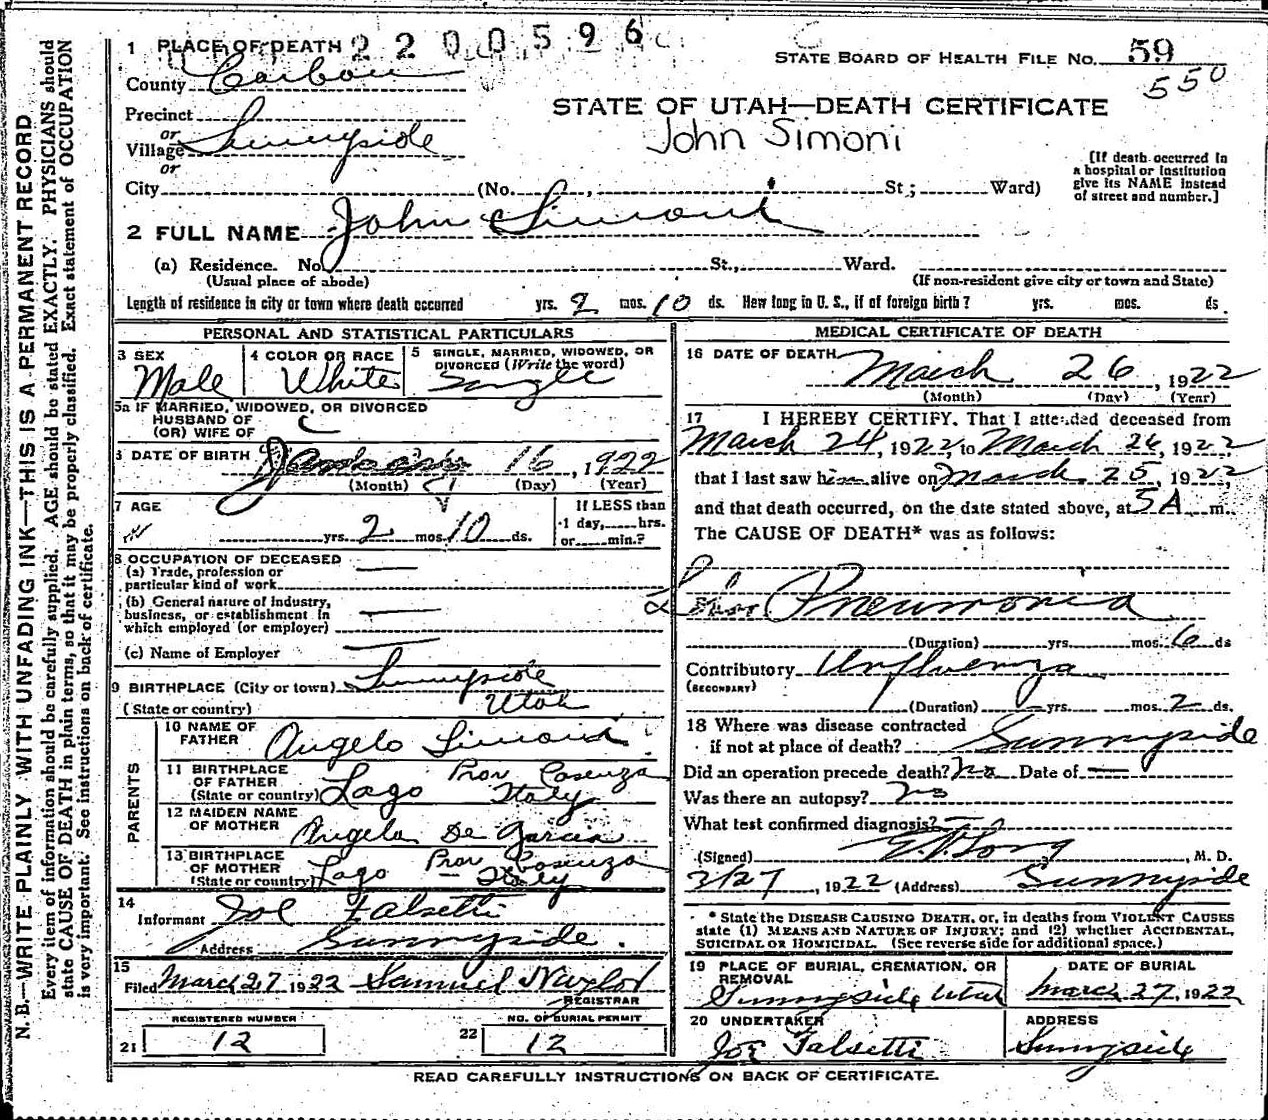 N. B.—WRITE PLAINLY WITH UNFADING INK—THIS IS A PERMANENT RECORD
Every item of information should be carefully supplied. AGE should be stated EXACTLY. PHYSICIANS should
state CAUSE OF DEATH in plain terms, so that it may be properly classified. Exact statement of OCCUPATION
is very important. See instructions on back of certificate.
1 PLACE OF DEATH 2200596
STATE BOARD OF HEALTH FILE NO. 59
550
County Carbon
STATE OF UTAH—DEATH CERTIFICATE
John Simoni
Precinct
or
Village Sunnyside
or
City (No. , St; Ward)
[If death occurred in
a hospital or institution
give its NAME instead
of street and number.]
2 FULL NAME John Simoni
(a) Residence. No. St., Ward.
(Usual place of abode) (If non-resident give city or town and State)
Length of residence in city or town where death occurred yrs. 2 mos. 10 ds. How long in U. S., if of foreign birth? yrs. mos. ds.
PERSONAL AND STATISTICAL PARTICULARS
3 SEX
Male
4 COLOR OR RACE
White
5 SINGLE, MARRIED, WIDOWED, OR
DIVORCED (Write the word)
Single
5a IF MARRIED, WIDOWED, OR DIVORCED
HUSBAND OF
(OR) WIFE OF
6 DATE OF BIRTH 16, 1922
(Month) (Day) (Year)
7 AGE
yrs. 2 mos. 10 ds.
If LESS than
1 day, hrs.
or min.?
8 OCCUPATION OF DECEASED
(a) Trade, profession or
particular kind of work
(b) General nature of industry,
business, or establishment in
which employed (or employer)
(c) Name of Employer
9 BIRTHPLACE (City or town) Sunnyside
(State or country) Utah
PARENTS
10 NAME OF
FATHER Angelo Simoni
11 BIRTHPLACE
OF FATHER
(State or country) Lago Prov Cosenza
Italy
12 MAIDEN NAME
OF MOTHER Angela De
13 BIRTHPLACE
OF MOTHER
(State or country) Lago Prov Cosenza
Italy
14
Informant Joe Falsetti
Address Sunnyside.
15
Filed March 27 1922 Samuel Naylor
REGISTRAR
REGISTERED NUMBER
21 12
NO. OF BURIAL PERMIT
22 12
MEDICAL CERTIFICATE OF DEATH
16 DATE OF DEATH March 26, 1922
(Month) (Day) (Year)
17 I HEREBY CERTIFY, That I attended deceased from
March 24, 1922, to March 26, 1922
that I last saw him alive on March 25, 1922,
and that death occurred, on the date stated above, at 5 A m.
The CAUSE OF DEATH* was as follows:
Lobar Pneumonia
(Duration) yrs. mos. 6 ds
Contributory Influenza
(SECONDARY)
(Duration) yrs. mos. 2 ds.
18 Where was disease contracted
if not at place of death? Sunnyside
Did an operation precede death? No Date of —
Was there an autopsy? No
What test confirmed diagnosis?
(Signed) , M. D.
3/27, 1922 (Address) Sunnyside
* State the DISEASE CAUSING DEATH, or, in deaths from VIOLENT CAUSES
state (1) MEANS AND NATURE OF INJURY; and (2) whether ACCIDENTAL,
SUICIDAL OR HOMICIDAL. (See reverse side for additional space.)
19 PLACE OF BURIAL, CREMATION, OR
REMOVAL
Sunnyside Utah
DATE OF BURIAL
March 27, 1922
20 UNDERTAKER
Joe Falsetti
ADDRESS
Sunnyside
READ CAREFULLY INSTRUCTIONS ON BACK OF CERTIFICATE.